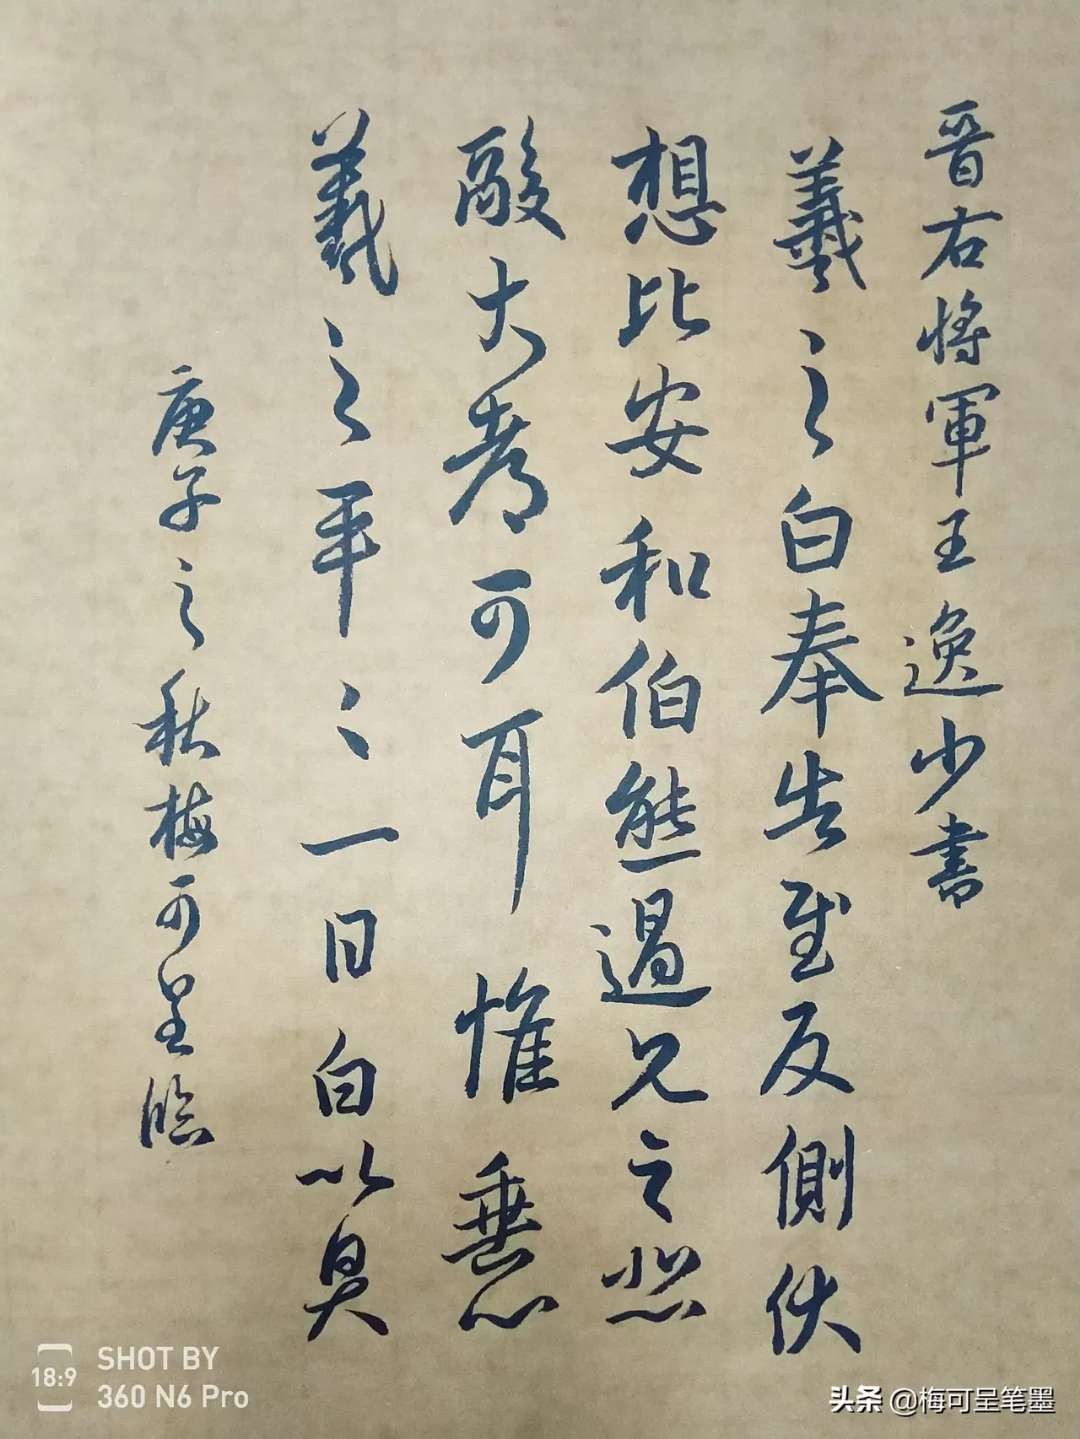 晋右將軍王逸少書
羲之白奉告至反側伏
想比安和伯熊過兄之悲
酸大考可耳惟垂
羲之年〻一日白以具
庚子之秋梅可呈临
SHOT BY
18:9
360 N6 Pro
头条 @梅可呈笔墨